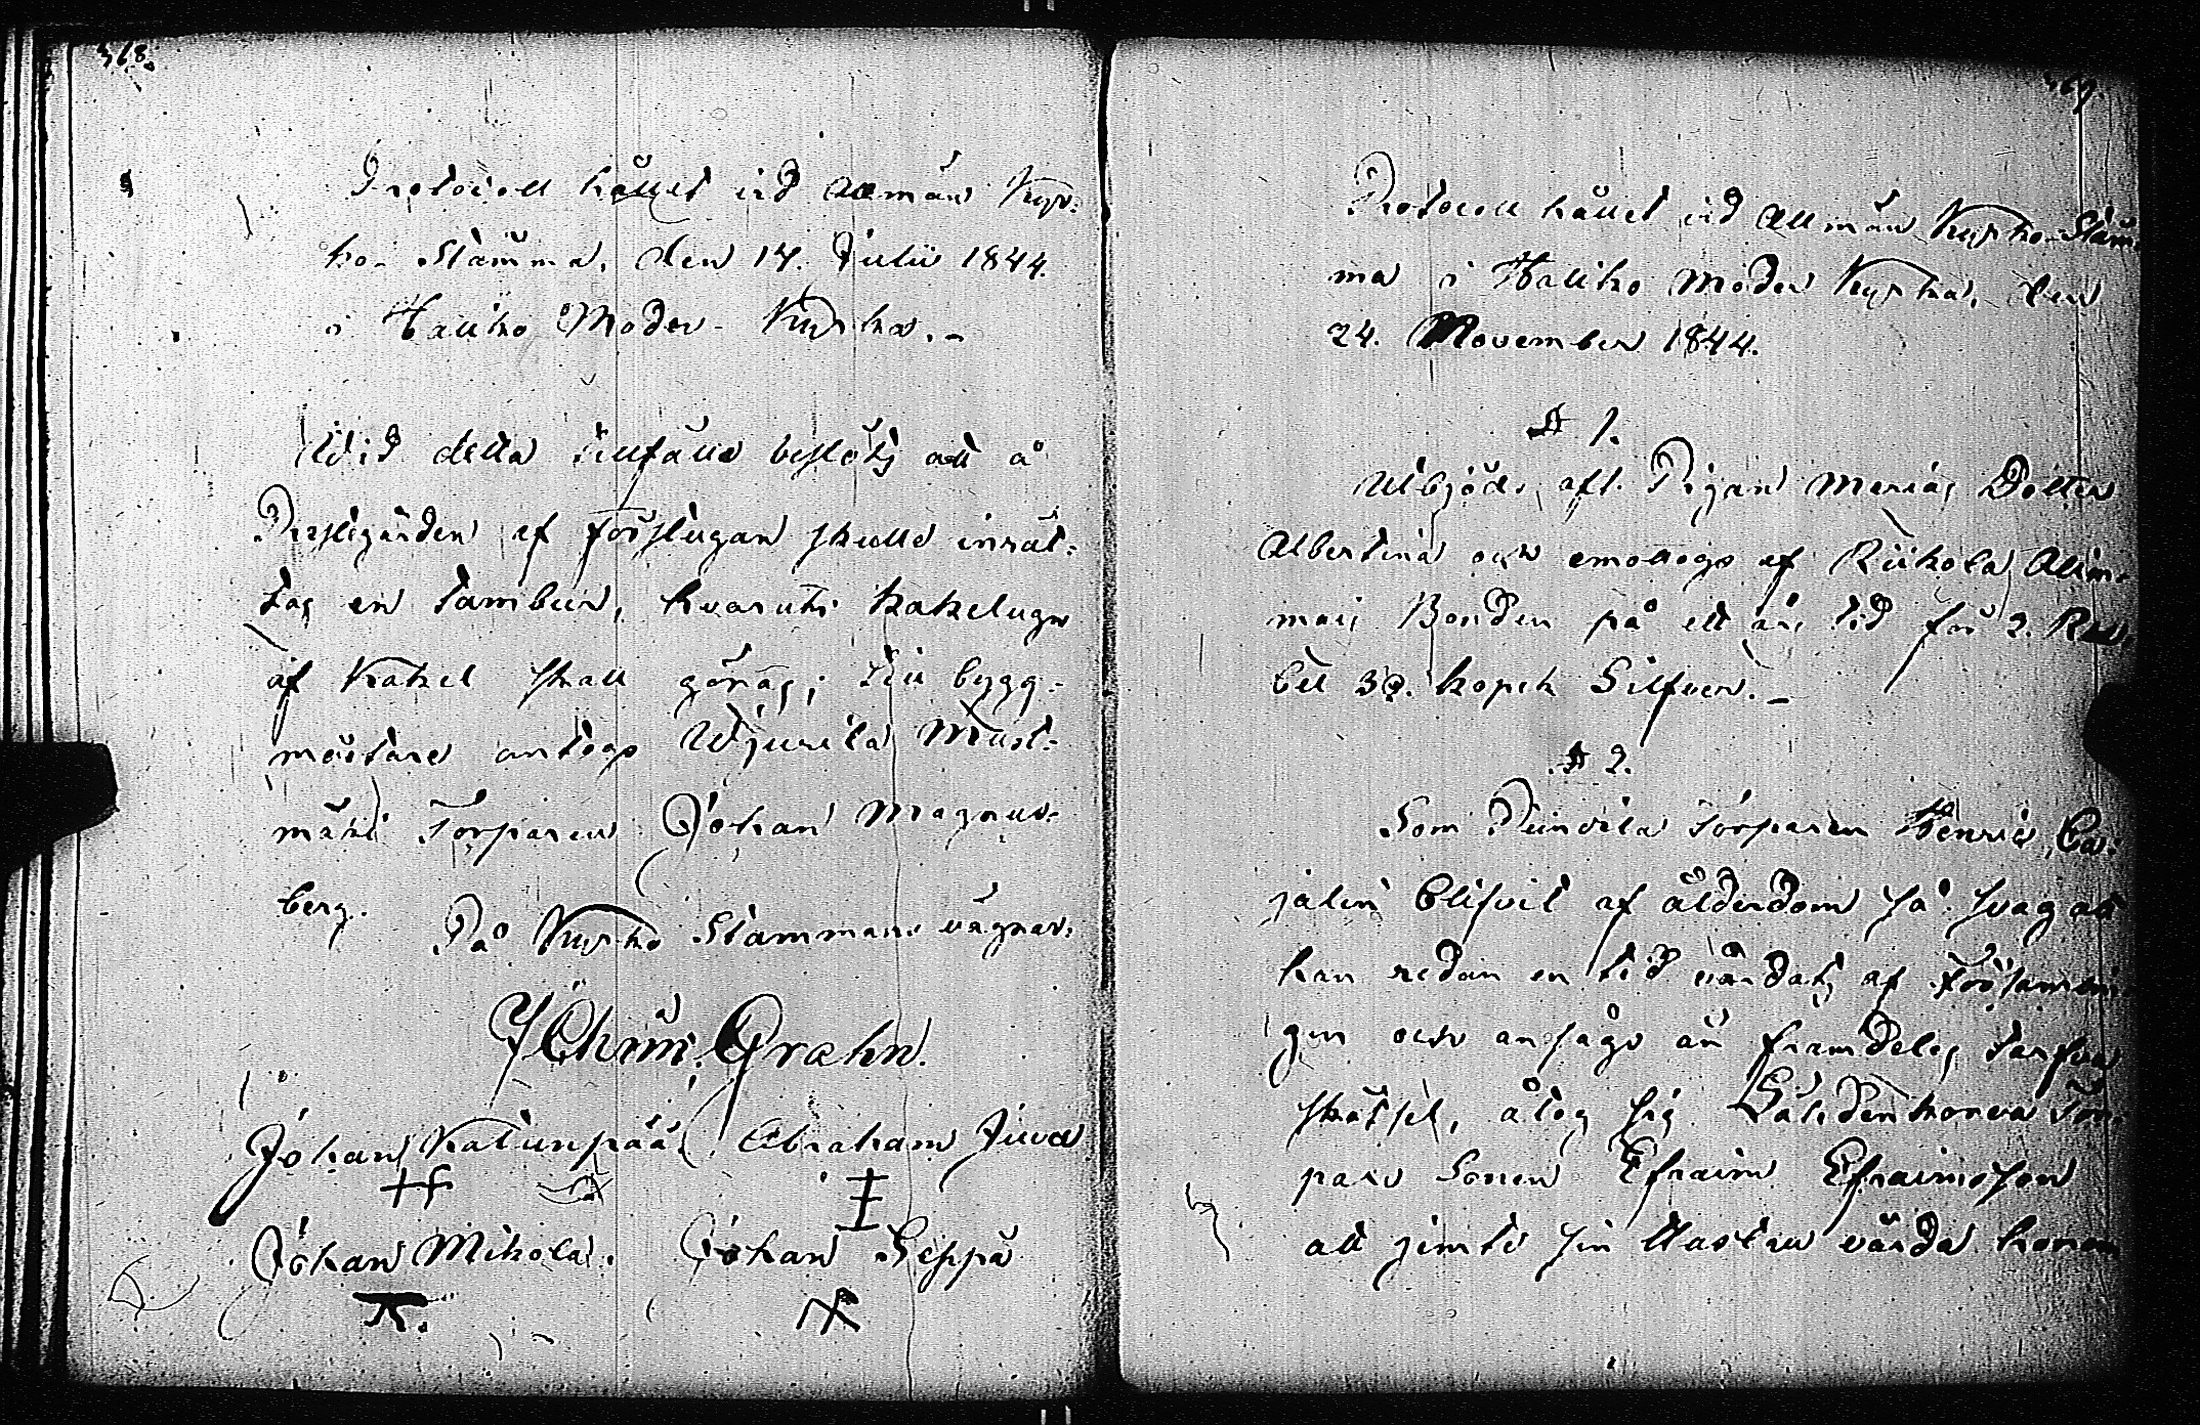 368.
Protocoll hållet vid Allmän Kyr-
ko-Stämma, den 14. Julii 1844.
i Halikko Moder-Kyrka.-
Wid detta tillfälle beslöts att å
Prestgården af förstugan skulle inrät-
tas en tambur, hvaruti kakelugn
af Kakel skall göras; till bygg-
mästare antogs Wjurila Must-
mäki Torparen Johan Magnus-
berg.
På Kyrko Stämmans vägnar:
Ehrnr. Grahn.
Johan Katunpää Abraham Juva
Johan Mikola. Johan Seppä
369.
Protocoll hållet vid Allmän Kyrko-Stäm-
ma i Halikko Moder Kyrka, den
24. November 1844.
§ 1.
Utbjöds afl. Pigan Marias Dotter
Albertina och emottogs af Riikola
Bonden på ett års tid för 2. Ru-
bel 30. kopek Silfver.-
§ 2.
Som Torparen Henric Ca-
jalin blifvit af ålderdom så svag att
han redan en tid vårdats af Församlin-
gen och ansågs än framdeles tarfva
skötsel, åtog sig Tor-
pare Sonen Efraim Efraimsson
att jemte sin Hustru vårda honom